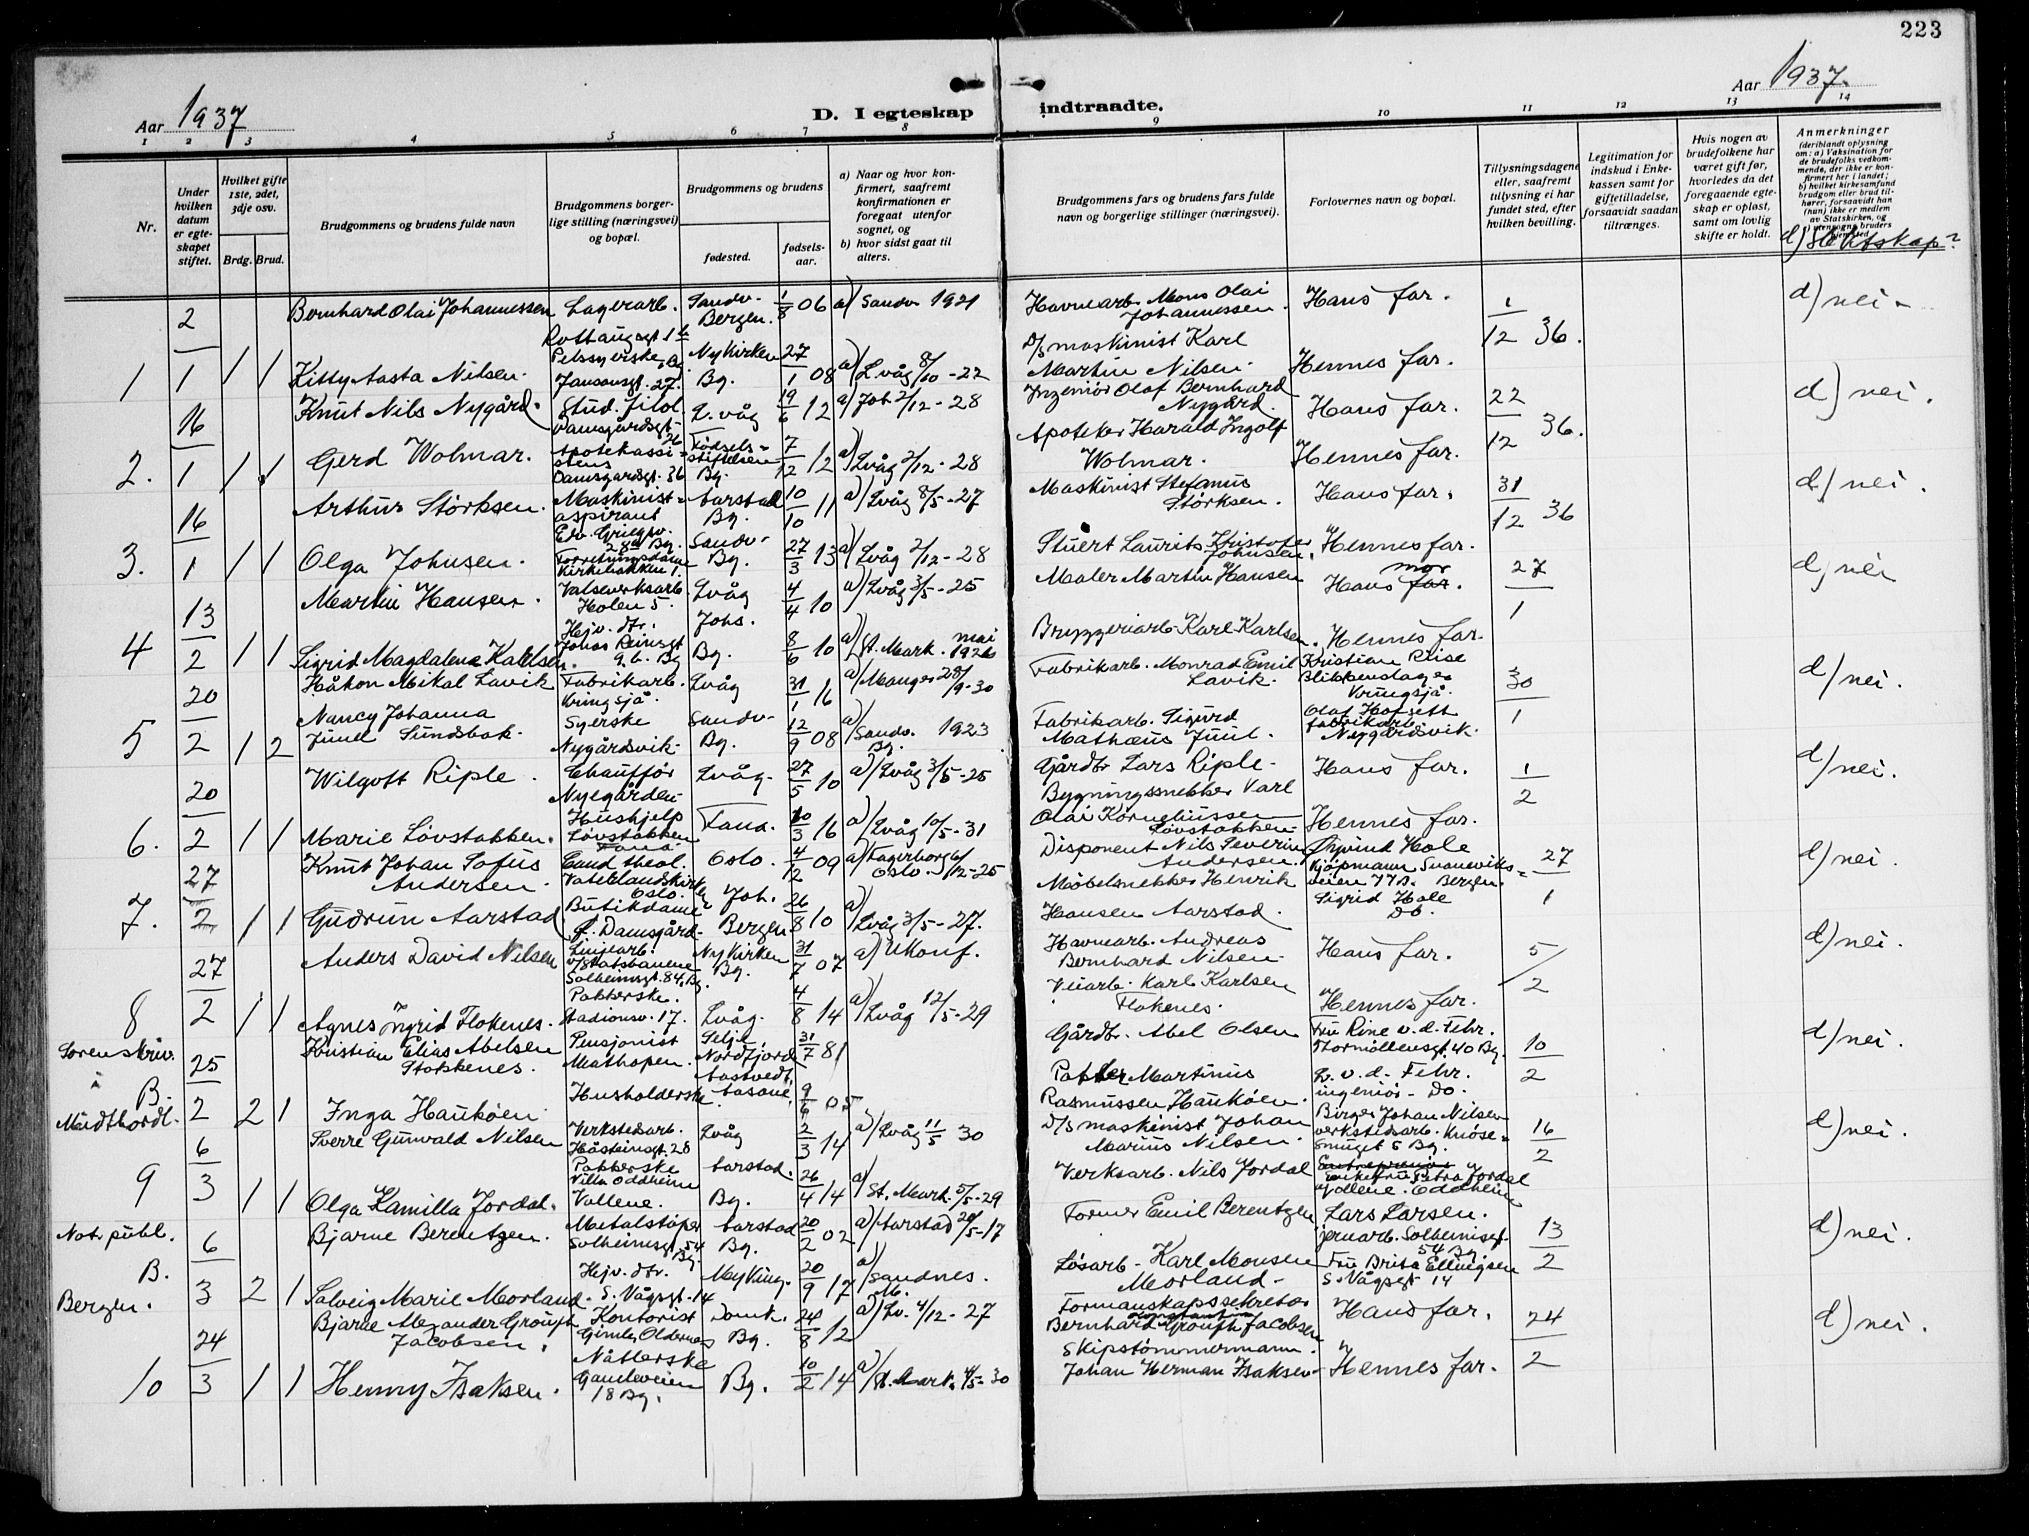 223
Aar 1937
D. I egteskap
indtraadte.
Aar 1937.
1 2 3 4 5 6 7 8 9 10 11 12 13 14
Nr.
Under hvilken datum er egteskapet stiftet.
Hvilket gifte 1ste, 2det, 3dje osv.
Brdg. Brud.
Brudgommens og brudens fulde navn
Brudgommens borgerlige stilling (næringsvei) og bopæl.
Brudgommens og brudens
fødested.
fødselsaar.
a) Naar og hvor konfirmert, saafremt konfirmationen er foregaat utenfor sognet, og
b) hvor sidst gaat til alters.
Brudgommens fars og brudens fars fulde navn og borgerlige stillinger (næringsvei).
Forlovernes navn og bopæl.
Tillysningsdagene eller, saafremt tillysning ei har fundet sted, efter hvilken bevilling.
Legitimation for indskud i Enkekassen samt for giftetilladelse, forsaavidt saadan tiltrænges.
Hvis nogen av brudefolkene har været gift før, hvorledes da det foregaaende egteskap er opløst, samt om lovlig skifte er holdt.
Anmerkninger
(deriblandt oplysning om: a) Vaksination for de brudefolks vedkommende, der ikke er konfirmert her i landet; b) hvilket kirkesamfund brudgom eller brud tilhører, forsaavidt han (hun) ikke er medlem av Statskirken, og
d) Slektskap?
2/1 Bernhard Olai Johannessen Lagerarb. Sandv. Bergen. 1/8 06 a) Sandv 1921 Havnearb. Mons Olai Johannessen. Hans far. 1/12 36. d) nei
1 1 1 Kitty Aasta Nilsen. Pelssyerske Jansonsgt. 27. Nykirken Bg. 27/1 08 a) Lvåg 8/10-22 D/S maskinist Karl Martin Nilsen. Hennes far.
16/1 Knut Nils Nygård. Stud. filol. Damsgårdsgt. L.våg 19/6 12 a) Joh. 2/12-28 Ingeniör Olaf Bernhard Nygård. Hans far. 22/12 36. d) nei.
2. 1 1 Gerd Wolmar. Apotekassistens Damsgårdsgt. 36 Fødselsstiftelsen Bg. 7/12 12 a) Lvåg 2/12-28 Apoteker Harald Ingolf Wolmar. Hennes far.
16/1 Arthur Störksen. Maskinistaspirant Edv. Griegsv. Aarstad Bg. 10/10 11 a) Lvåg 8/5-27 Maskinist Stefanus Störksen. Hans far. 31/12 36 d) nei.
3. 1 1 Olga Johnsen. Forretningsdame Kirkebakken 1. Sandv. Bg. 27/3 13 a) Lvåg 2/12-28 Stuert Laurits Kristofer Johnsen. Hennes far.
13/2 Martin Hansen. Valseverksarb. Holen 5. Lvåg 4/4 10 a) Lvåg 3/5-25 Maler Martin Hansen Hans far. mor 27/1 d) nei
4 1 1 Sigrid Magdalene Karlsen. Hejv. dtr. Johs. Bg. 8/6 10 a) St. Mark. mai 1926 Bryggeriarb. Karl Karlsen. Hennes far.
20/2 Håkon Mikal Lavik Fabrikarb. Kringsjå Lvåg 31/1 16 a) Manger 28/9-30 Fabrikarb. Monrad Emil Lavik. Kristian Riise Blikkenslager Kringsjå 30/1 d) nei.
5 1 2 Nancy Johanna Juul Sundsbak. Syerske Nygårdsvik. Sandv. Bg. 12/9 08 a) Sandv. Bg. 1923 Fabrikarb. Sigurd Mathæus Juul. Olaf Hofsett fabrikarb. Nygårdsvik.
20/2 Wilgott Riple. Chaufför Nyegården Lvåg. 27/5 10 a) Lvåg 3/5-25 Gårdbr. Lars Riple. Hans far. 1/2 d) nei.
6. 1 1 Marie Lövstakken. Hushjelp Lövstakken Fana. Fana. 10/3 16 a) Lvåg 10/5-31 Bygningssnekker Karl Olai Korneliussen Lövstakken Hennes far.
27/2 Knut Johan Sofus Andersen. Cand. theol. Vaterlandskirke Oslo. Oslo. 4/2 09 a) Fagerborg Oslo. 6/12-25 Disponent Nils Severin Andersen. Øyvind Hole Kjöpmann Svaneviksveien 77B. Bergen. 27/1 d) nei.
7. 1 1 Gudrun Aarstad Butikdame f. Damsgård. Joh. Bergen. 26/8 10 a) Lvåg 3/5-27. Möbelsnekker Henrik Hansen Aarstad. Sigrid Hole Do.
27/2 Anders David Nilsen Linjearb. v/Statsbanene Solheimsgt. 84, Bg. Nykirken Bg. 31/7 07 a) Ukonf. Havnearb. Andreas Bernhard Nilsen. Hans far. 5/2 d) nei.
8 1 1 Agnes Ingrid Flokenes. Pakkerske. Stadionsv. 17. Lvåg. 4/8 14 a) Lvåg 12/5-29 Veiarb. Karl Karlsen Flokenes. Hennes far.
Sorenskriv. i Midthordl. B.
25/2 Kristian Elias Abelsen Stokkenes. Pensjonist Mathopen. Selje Nordfjord 31/7 81 Gårdbr. Abel Olsen Fru Rine v.d. Fehr. Thormöllensgt. 40 Bg. 10/2 d) nei.
2 1 Inga Hauköen. Husholderske. 9/6 05 Pakker Martinus Rasmussen Hauköen. v.d. Fehr. ingeniör - Do.
6/3 Sverre Gunvald Nilsen Verkstedsarb. Håsteinsgt. 28 Lvåg 2/3 14 a) Lvåg 11/5 30 D/S maskinist Johan Marius Nilsen. Birger Johan Nilsen verkstedsarb. Knösesmuget 5 Bg. 16/2 d) nei.
9 1 1 Olga Kamilla Jordal. Pakkerske Villa Oddheim Vallene. Aarstad. Bg. 26/4 14 a) St. Mark. 5/5-29 Verksarb. Nils Jordal Enkefru Petra Jordal Vallene. Oddheim
Not. publ. B. Bergen.
6/3 Bjarne Berentzen. Metalstöper Solheimsgt. 54 Bg. Aarstad Bg. 20/2 02 a) Aarstad 20/5-17 Former Emil Berentzen Lars Larsen. jernarb. Solheimsgt. 54 Bg. 13/2 d) nei.
2 1 Solveig Marie Morland. Hejv. dtr. S. Vågsgt. 14 20/9 17 a) Sandnes. Lösarb. Karl Monsen Morland. Fru Brita Ellingsen S. Vågsgt 14
24/3 Bjarne Alexander Jacobsen. Kontorist Gimle, Oldernes Domk. Bg. 24/8 12 a) Lv. 4/12-27 Formanskapssekretær Bernhard Jacobsen Hans far. 24/2 d) nei.
10 1 1 Henny Isaksen. Nåtlerske Gamleveien 18 Bg. Bg. 10/2 14 a) St. Mark. 4/5-30 Skipstömmermann. Johan Herman Isaksen. Hennes far.